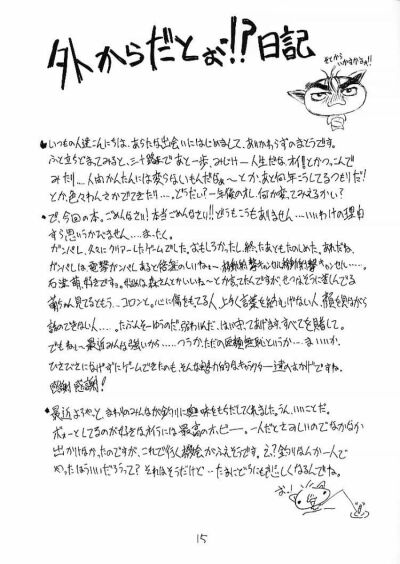 外からだとぉ!!?日記
そとから
いかすかるぁ!!
●いつもの人達こんにちは、あらたな出会いにはじめまして、あいかわらずのさとうです。
ふと立ちどまってみると、三十路まであと一歩、みじけー人生だな、オイ!とかつっこんで
みたり…人間かんたんには変らないもんだねぇ〜とか、あと何年こうしてるつもりだ!
とか、色々わんさかでてきたり…、どうだい?一年後のオレ、何か変ってみえるかい?
●で、今回の本。ごめんなさい!本当ごめんなさい!!どうもこうもありません…いいわけの理由
すら思いうかびません…まったく。
ガンパレ、久々にクリアーしたゲームでした。おもしろかったし、終ったあともたのしめた。
ガンパレは電撃ガンパレあると倍楽のしいねぇ〜
石津萌、好きです。
萌ちゃん見てるともう…コロンと。心に傷をもてる人、上手く言葉をつむげない人、顔を見ながら
話のできない人……たぶんそーゆうのだ弱わいんだ、はい、すくってあげます、すべてを賭して。
でもねぇ〜最近みんなは強いから……つうか、ただの
ひさびさになげずにゲームできたのも、そんな魅力的なキャラクター達のおかげですね。
感謝感謝!
●最近ようやっと、まわりのみんなが釣りに興味をもちだしてくれました。うん、いいことだ。
ボォーとしてるのが好きなオイラには最高のホビー。一人だとさみしいのでなかなか
出かけなかったのですが、これで行く機会がふえそうです。え?釣りなんか一人で
やったほうがいいだろうって?それはそうだけど…たまにどうにもさびしくなるんでね。
お!
15